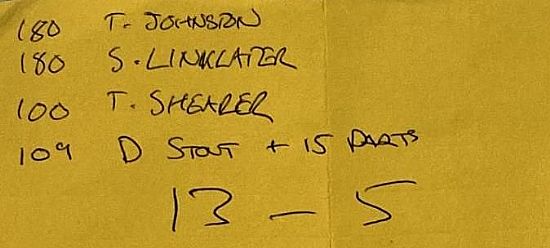 180 T. JOHNSTON
180 S. LINKLATER
100 T. SHEARER
109 D STOUT + 15 DARTS
13 - 5